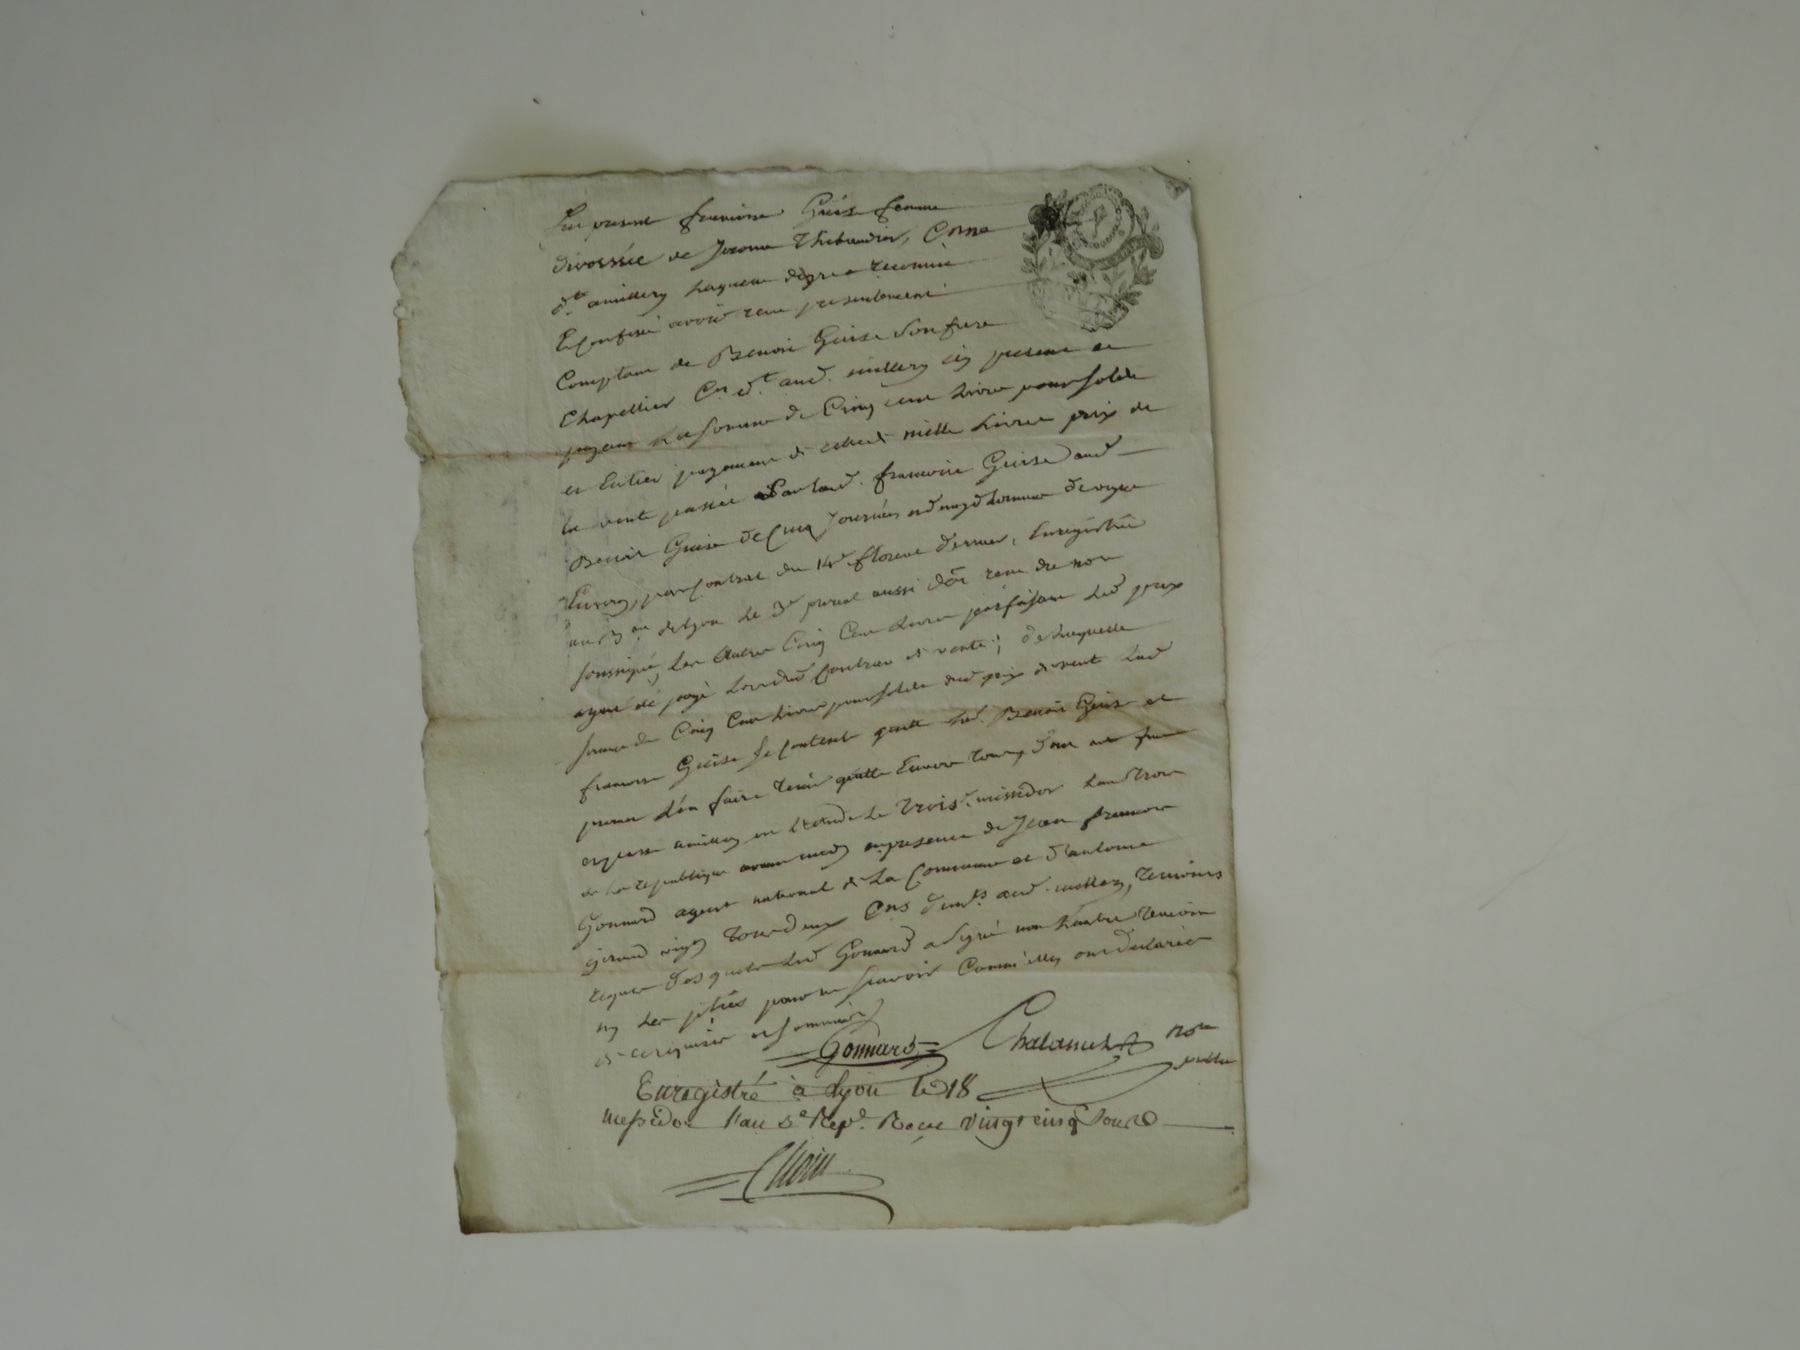 fut presente francoise Guise femme
divorsée de Jerome Thibaudier, Cnne
dt. a millery Laquelle de gré a reconnu
Et confessé avoir recu presentement
Comptant de Benoit Guise Son frere
Chapellier Cn. dt. aud. millery icy present et
payant La Somme de Cinq cent Livres pour Solde
et Entier payement de celle de mille Livres prix de
la vente passée Par lad. francoise Guise aud
Benoit Guise de Cinq Journées
par Contrat du 14e floreal dernier, Enregistrée
au Bau de Lyon Le 3e prerial aussi der recu du nore
soussigné, Les Autres Cinq Cent Livres parfaisant Led prix
ayant été payé Lors dud Contrat de vente; de Laquelle
somme de Cinq Cent Livres pour Solde dud prix de vente Lad
francoise Guise Se Contente quitte Led. Benoit Guise et
promet L'en faire tenir quitte Envers tous, Dont acte fait
et passé a millery en L'etude Le Trois. messidor L'an Trois
de La republique avant midy en presence de Jean francois
Gonnard agent national de La Commune et d'antoine
giraud tous deux Cns demts. aud. millery, Temoins
requis Desquels Led Gonnard a Signé non L'autre Temoin
ny Les parties pour ne Scavoir Comm'illy ont declaré
de ce requis et Sommés
Gonnard Chalamel nore
Enregistré à Lyon le 18
messidor l'an 3e Repe. Recu vingt cinq Sous